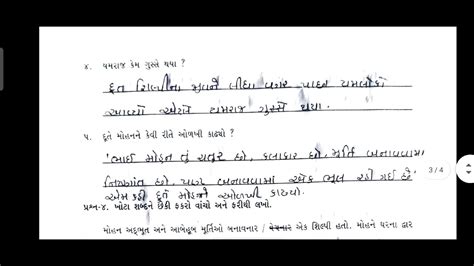 ૪. યમરાજ કેમ ગુસ્સે થયા ?
દૂત શિલ્પીના જીવને લીધા વગર પાછા યમલોકો
આવ્યો એટલે યમરાજ ગુસ્સે થયા.
૫. દૂતે મોહનને કેવી રીતે ઓળખી કાઢ્યો ?
'ભાઈ મોહન તું ચતુર છો, કલાકાર છો, મૂર્તિ બનાવવામા
નિષ્ણાંત છો, પણ બનાવવામાં એક ભૂલ રહી ગઈ છે'
એમ કહી દૂતે મોહનને ઓળખી કાઢ્યો.
પ્રશ્ન-૪. ખોટા શબ્દને છેકી ફકરો વાંચો અને ફરીથી લખો.
મોહન અદ્ભુત અને આબેહૂબ મૂર્તિઓ બનાવનાર / વેચનાર એક શિલ્પી હતો. મોહને ઘરના દ્વાર
3/4